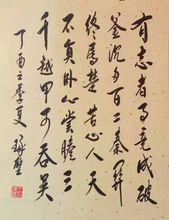 有志者事竟成破
釜沉舟百二秦关
终属楚苦心人天
不负卧薪尝胆三
千越甲可吞吴
丁酉之季夏